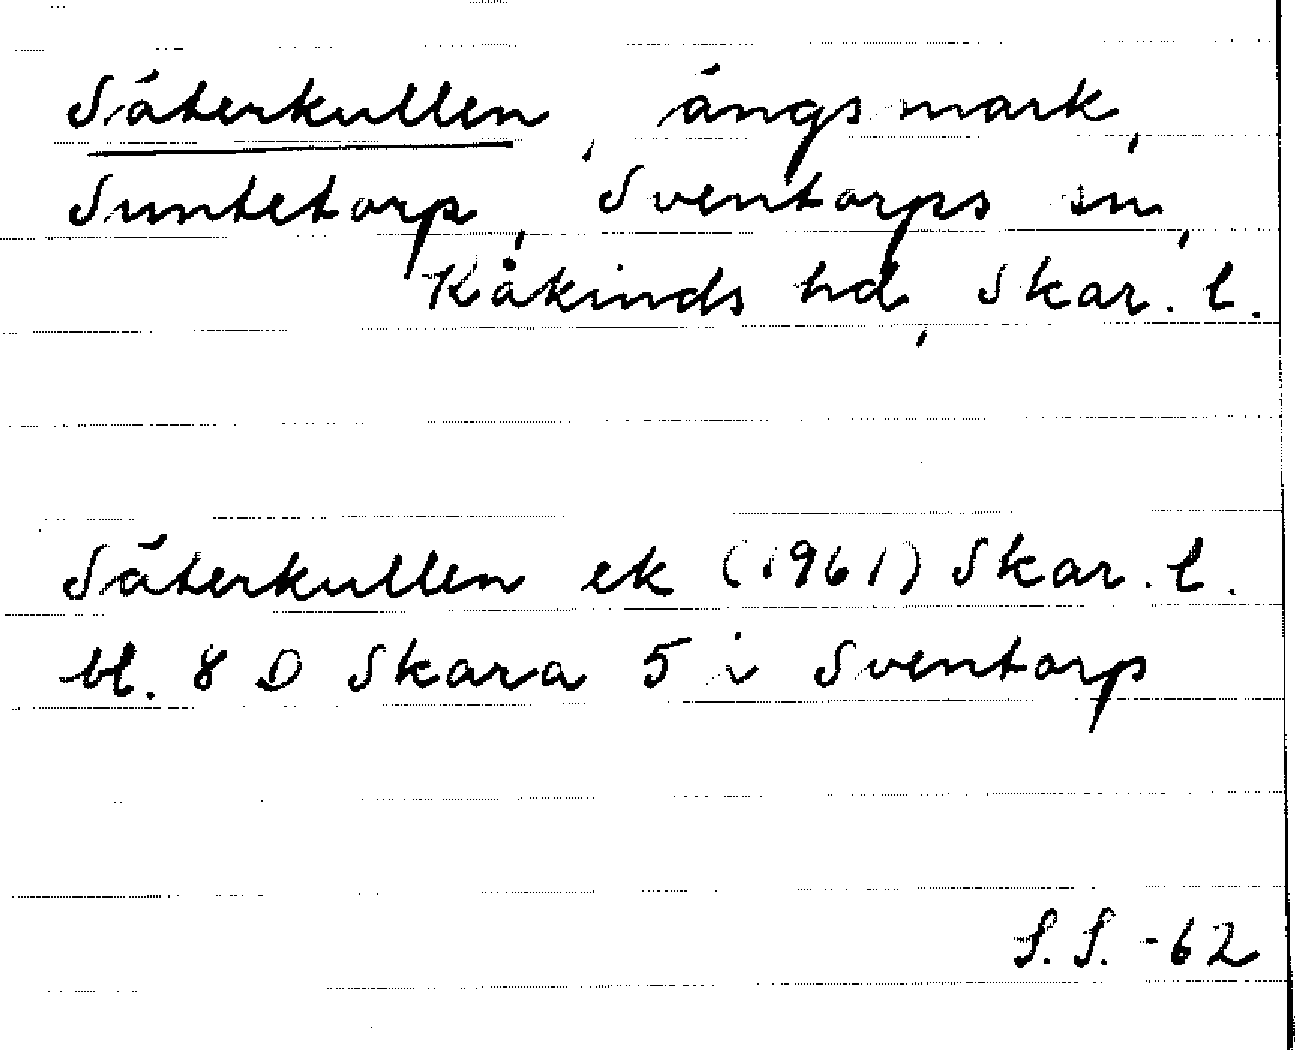 Säterkullen, ängsmark,
Suntetorp, Sventorps sn,
Kåkinds hd, Skar. l.
Säterkullen ek (1961) Skar. l.
bl. 8 D Skara 5 i Sventorp
S.S. -62